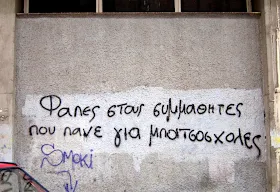 Φαπες στους συμμαθητες
που πανε για μπατσοσχολες
Smoki